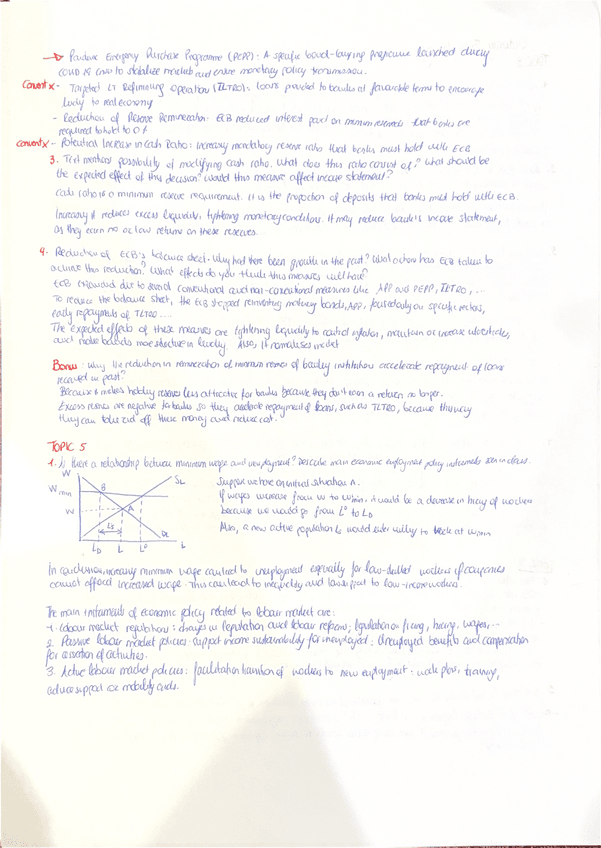 → Pandemic Emergency Purchase Programme (PEPP): A specific bond-buying programme launched during
COVID 19 crisis to stabilize markets and ensure monetary policy transmission.
Convent x - Targeted LT Refinancing Operation (TLTRO): loans provided to banks at favorable terms to encourage
lending to real economy
- Reduction of Reserve Remuneration: ECB reduced interest paid on minimum reserves that banks are
required to hold to 0%
Convent x - Potential Increase in Cash Ratio: Increasing mandatory reserve ratio that banks must hold with ECB
3. Text mentions possibility of modifying cash ratio. What does this ratio consist of? What should be
the expected effect of this decision? Would this measure affect income statement?
Cash ratio is a minimum reserve requirement. It is the proportion of deposits that banks must hold with ECB.
Increasing it reduces excess liquidity, tightening monetary conditions. It may reduce bank's income statement,
as they earn no or low returns on these reserves.
4. Reduction of ECB's balance sheet. Why had there been growth in the past? What actions has ECB taken to
achieve this reduction? What effects do you think this measures will have?
ECB expanded due to several conventional and non-conventional measures like APP and PEPP, TLTRO, ...
To reduce the balance sheet, the ECB stopped reinvesting maturing bonds, APP, on specific sectors,
early repayments of TLTRO ...
The expected effects of these measures are tightening liquidity to control inflation, maintain or increase interest rates,
and make banks more selective in lending. Also, it normalises market
Bonus: Why the reduction in remuneration of minimum reserves of banking institutions accelerate repayment of loans
received in past?
Because it makes holding reserves less attractive for banks because they don't earn a return no longer.
Excess reserves are negative to banks so they accelerate repayment of loans, such as TLTRO, because this way
they can take rid off these money and reduce cost.
TOPIC 5
1. Is there a relationship between minimum wage and unemployment? Describe main economic employment policy instruments seen in class.
W
SL
Wmin
B
W
A
Ls
DL
LD L L° L
Suppose we have an initial situation A.
If wages increase from W to Wmin, it would be a decrease in hiring of workers
because we would go from L° to LD
Also, a new active population Ls would enter willing to work at Wmin
In conclusion, increasing minimum wage can lead to unemployment especially for low-skilled workers if companies
cannot afford increased wage. This can lead to inequality and to low-income workers.
The main instruments of economic policy related to labour market are:
1. Labour market regulations: changes in legislation and labour reforms; legislation on firing, hiring, wages, ...
2. Passive labour market policies: support income sustainability for unemployed: Unemployed benefits and compensation
for cessation of activities.
3. Active labour market policies: facilitation transition of workers to new employment: work plans, training,
advice support or mobility cards.